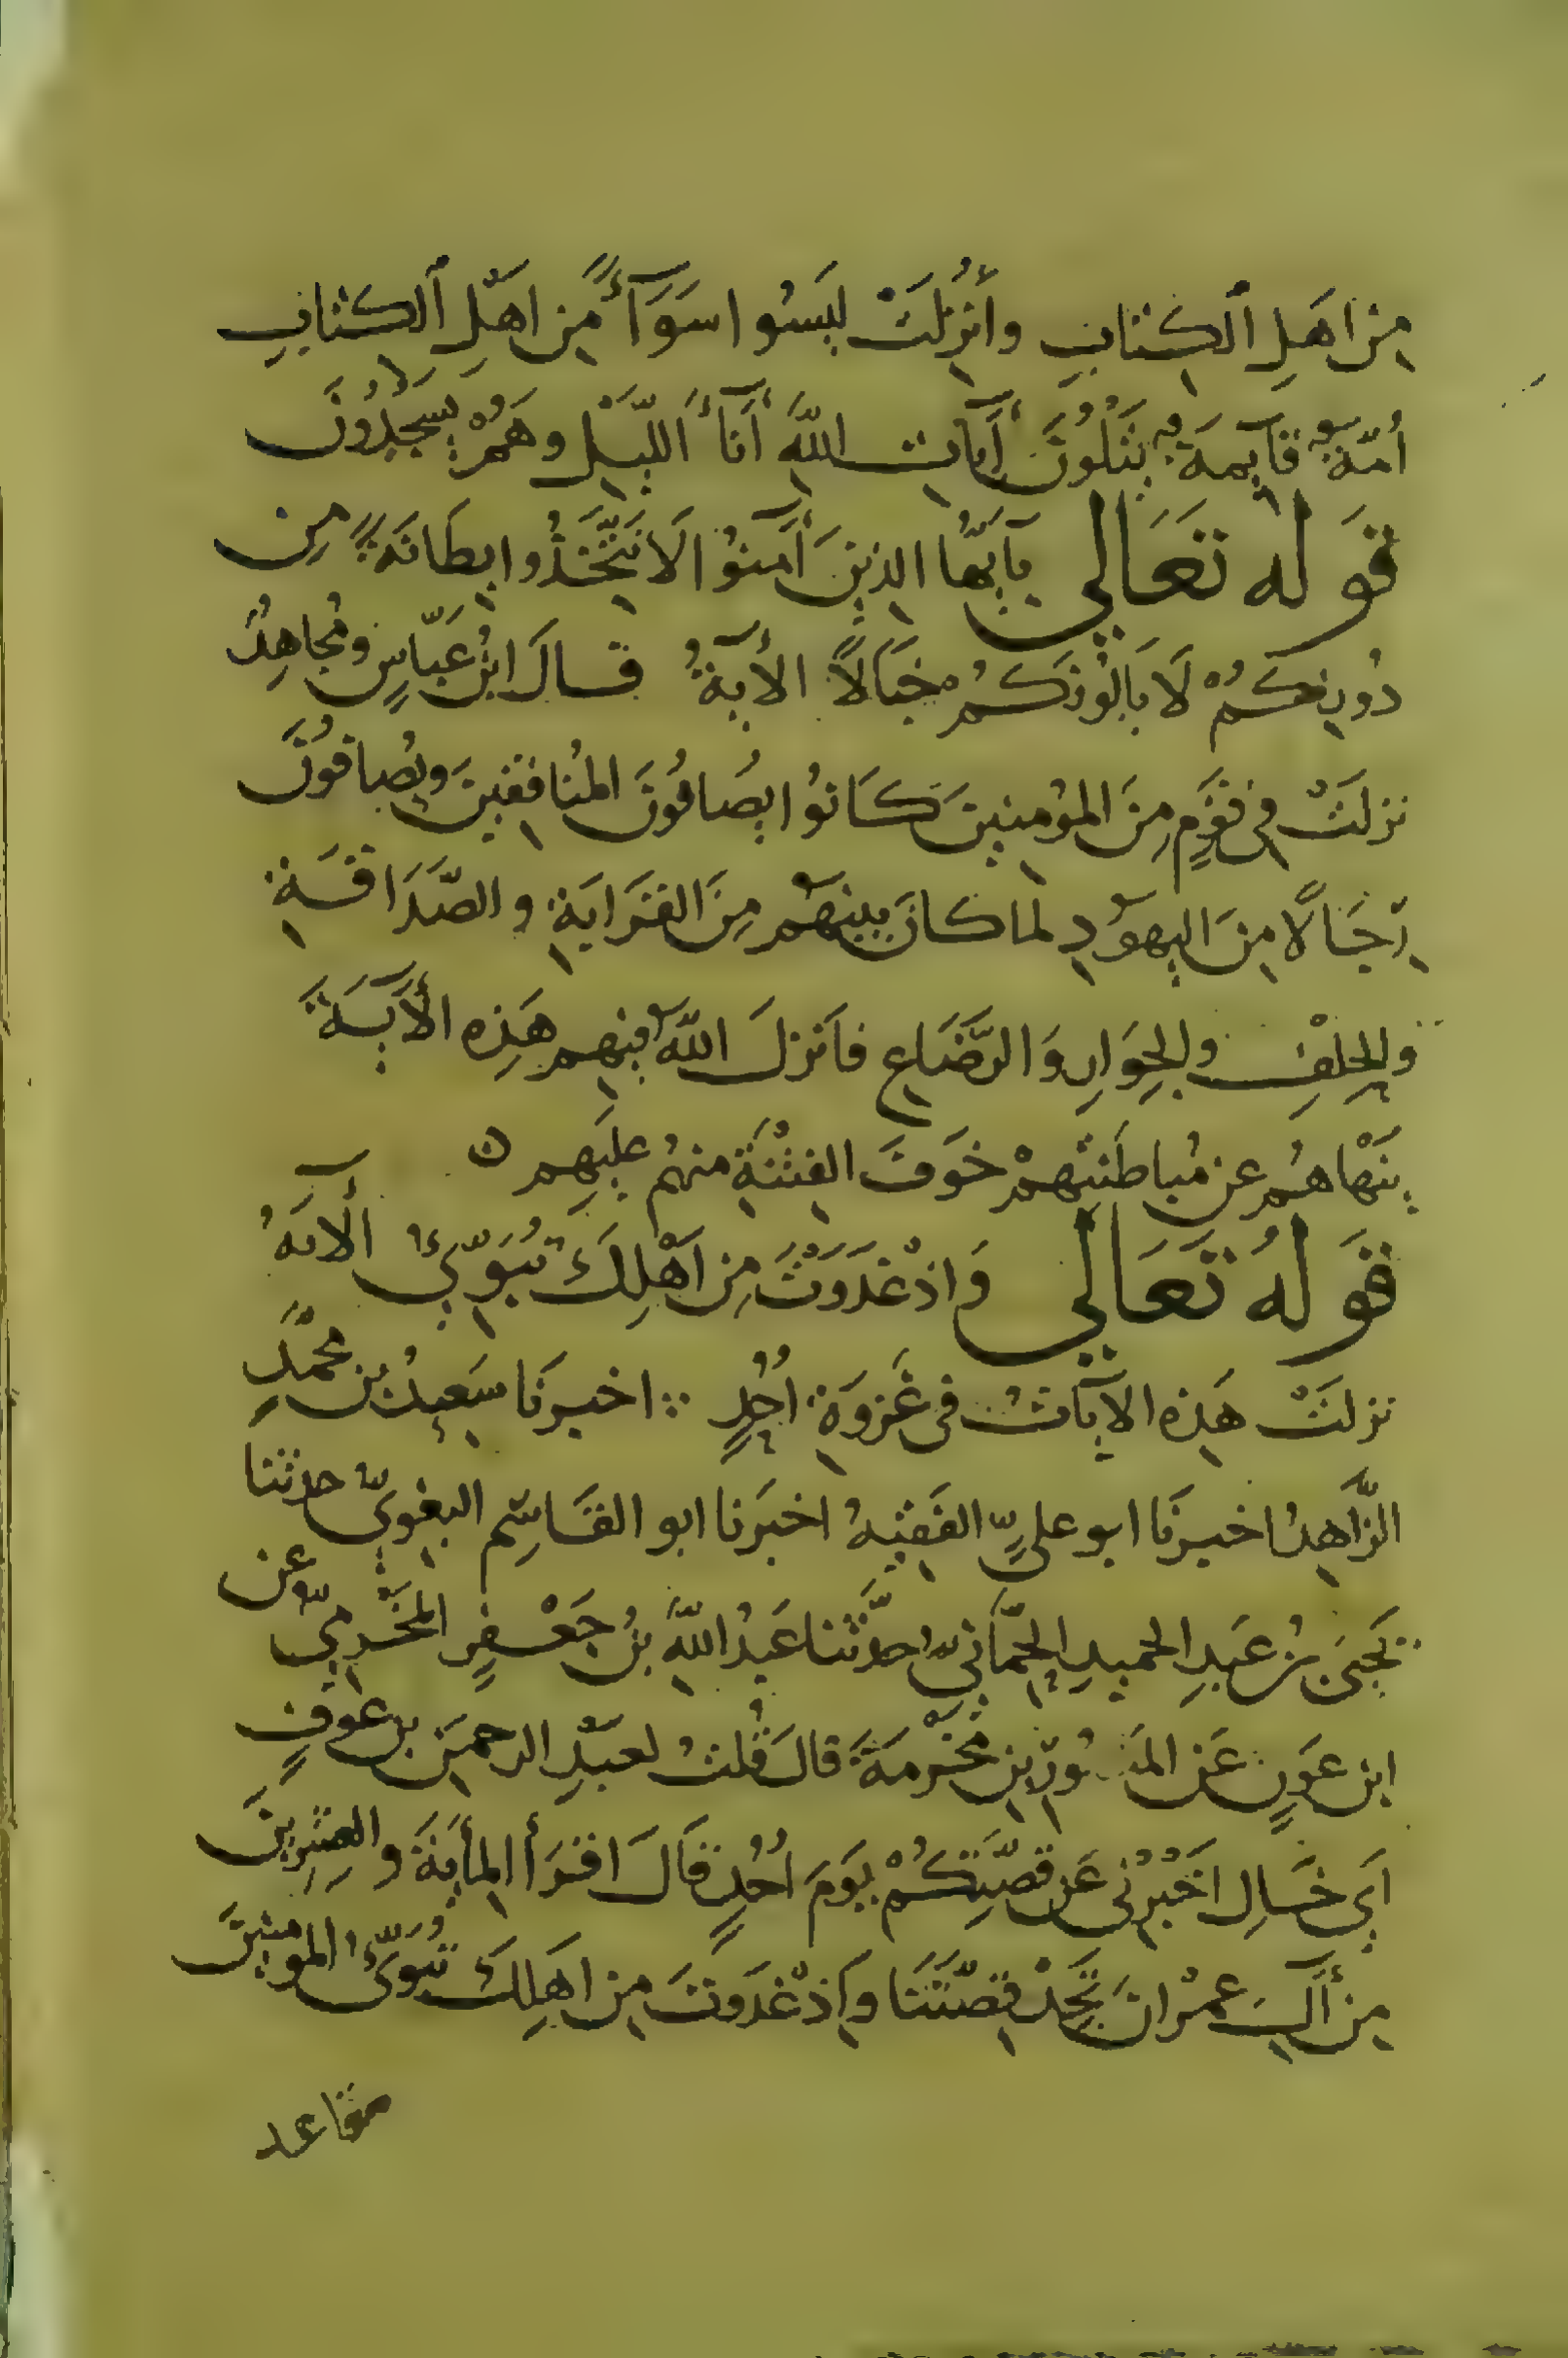 مِن اهَلِ الكِتابِ وأُنزلَتْ ليَسُوا سَوَآءً مِن اهَلِ الكتابِ
أُمّةٌ قآيمةٌ يَتْلُونَ أيات اللهِ أنآء اللّيَلِ وهَمُرْ يَسجُدُونَ
قوله تعَالي يآيّها الذينَ أَمنوُا لَا تتَّخذُوا بطَانَةً مِن
دُونِكُمْ لَا يَالُونَكُمُ خبَالاً الأيةُ قال ابنُ عَبّاسٍ ومُجاهِدُ
نزلَتْ في قَوَمٍ مِنَ المؤمنينَ كَانوُا يصُافُونَ المُنافقينَ ويُصافوُنَ
رجَالًا مِنَ اليهوُدِ لما كانَ بينهُم مِنَ القَرَابَةِ والصَّدَاقَةِ
والحِلفِ والجِوَارِ وَالرَّضَاعِ فاَنزلَ اللهُ فيهِم هَذِه الأَيَةَ
يَنْهاهُم عن مُباطَنتِهمْ خوَفَ الفِتْنَةِ منهُم علَيهِم ن
قَولهُ تعَالي وَاذْ غدَوَتَ مِن اَهْلِكَ تُبَوّيُ الأيَةُ
نزلَتْ هَذِه الأيَاتُ فى غَزوَةِ اُحُدٍ ∴ اخبرنَا سَعيدُ بن محمّدٍ
الزَّاهِدُ اخبرنَا ابو عليٍّ الفَقيْهُ اخبَرنا ابو القَاسِمِ البغويُّ حدثنا
يَحيَى بنُ عَبدِ الحميدِ الحِمّانيُّ حدَّثنا عَبدُ اللهِ بنُ جَعْفرٍ المخْرميُّ عن
ابن عوَنٍ عَن المسوَرِ بنِ مَخْرمَةَ قالَ قُلتُ لعبَدِ الرحمَن بن عوفٍ
أَي خَالِ اَخْبرْني عَن قصّتِكُمْ يوَمَ اُحُدٍ قَالَ اقرَأ المأيَةَ والعِشرِينَ
مِن أل عمْرانَ تَجِدْ قصّتَنَا وَاذ غدَوَتَ مِن اهَلِكَ تُبَوّئُ المومنينَ
مقاعد